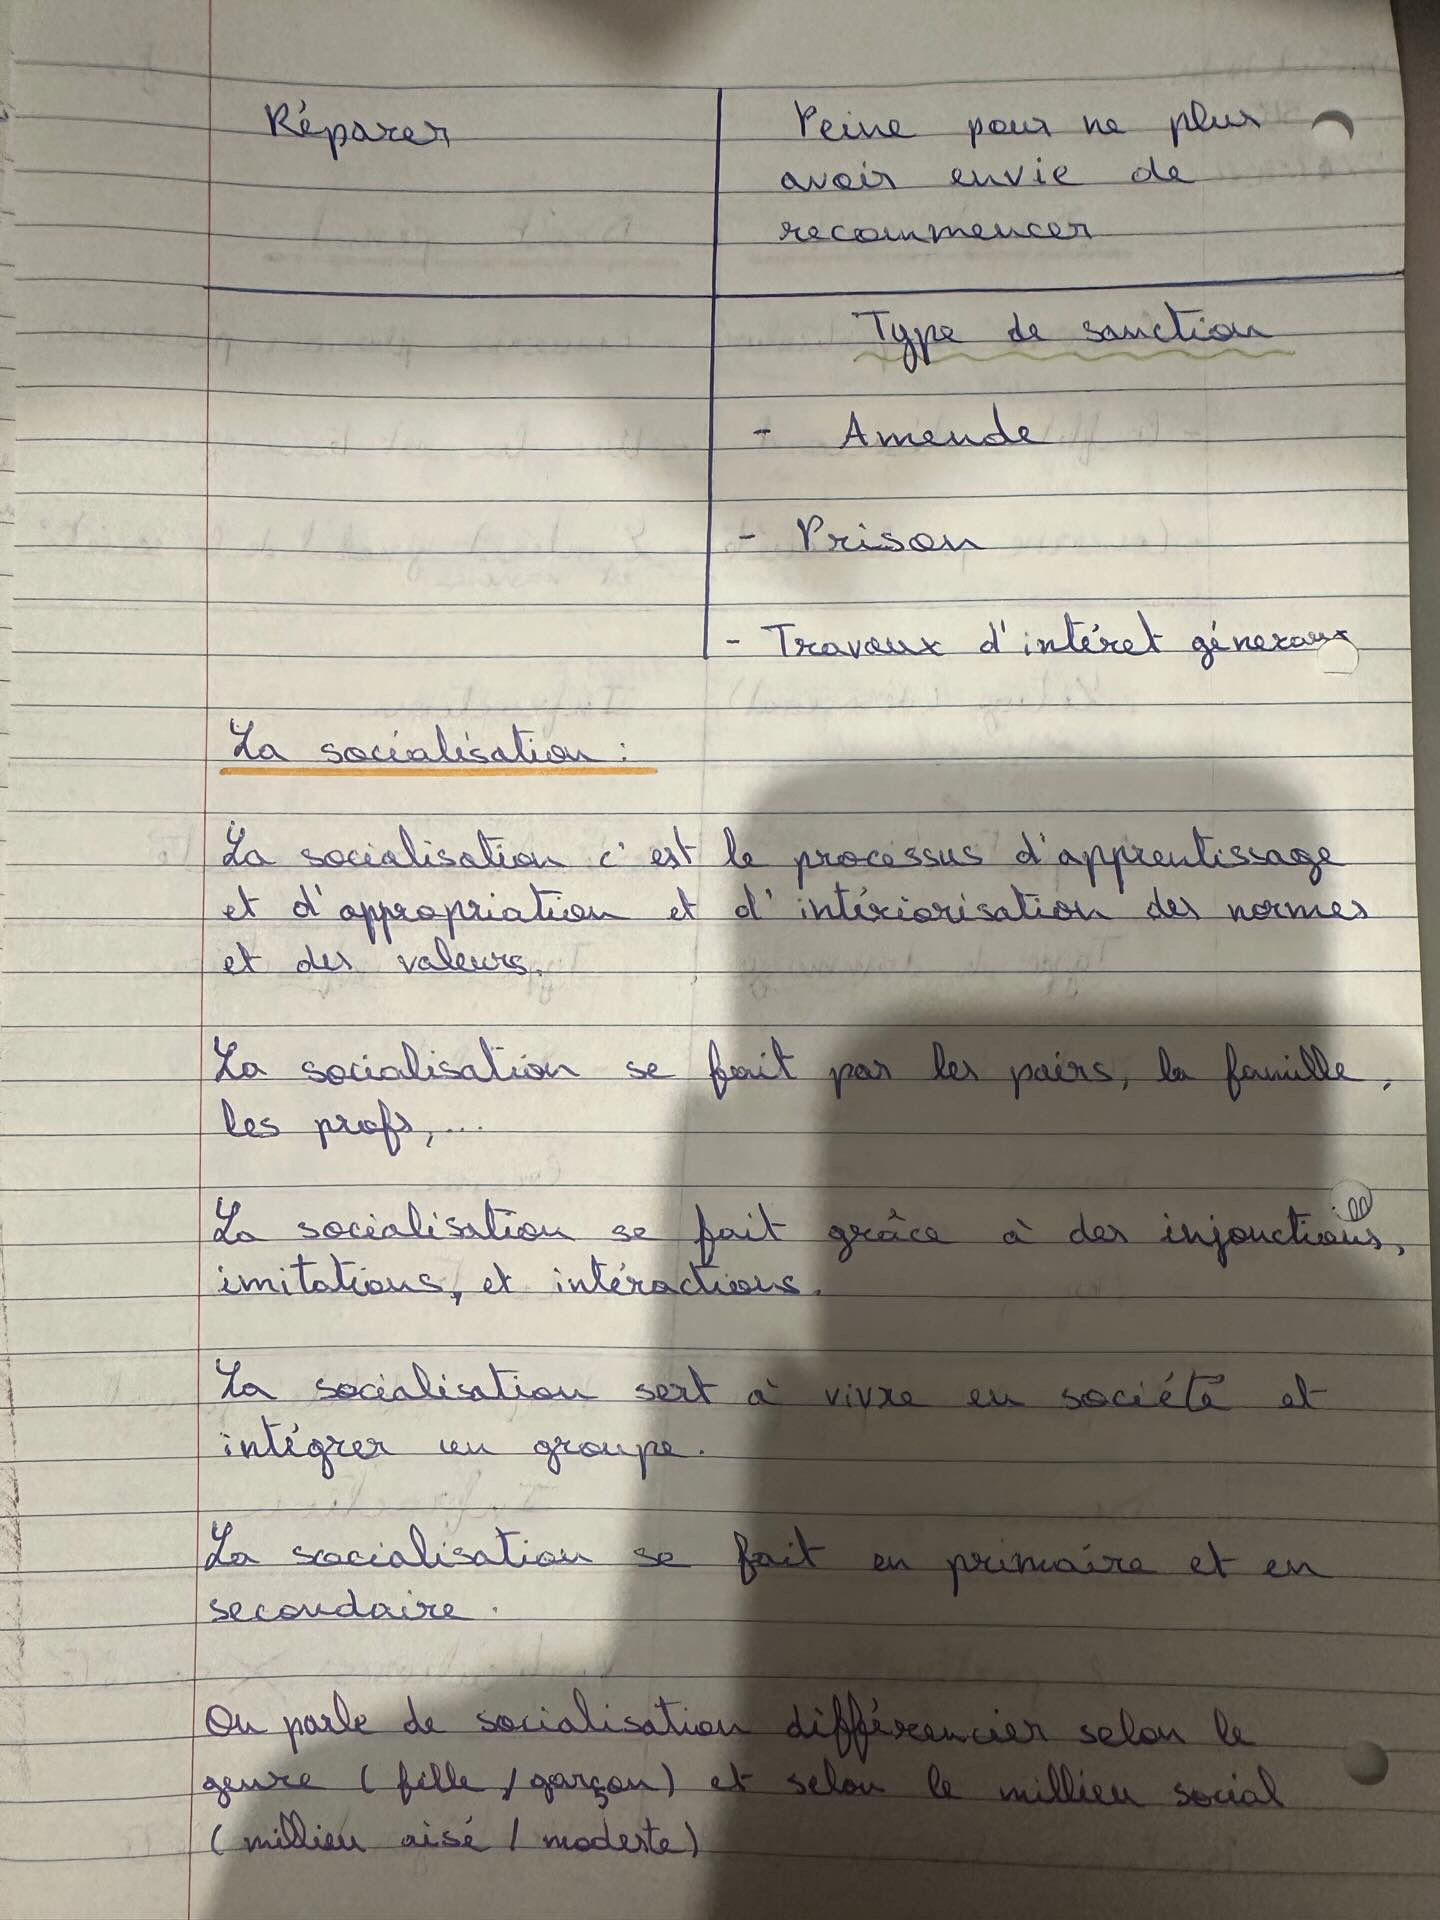 Réparer
Peine pour ne plus
avoir envie de
recommencer
Type de sanction
- Amende
- Prison
- Travaux d'intéret géneraux
La socialisation :
La socialisation c'est le processus d'apprentissage
et d'appropriation et d'intériorisation des normes
et des valeurs.
La socialisation se fait par les pairs, la famille,
les profs,...
La socialisation se fait grâce à des injonctions,
imitations, et intéractions.
La socialisation sert à vivre en société et
intégrer un groupe.
La socialisation se fait en primaire et en
secondaire.
On parle de socialisation différencier selon le
genre (fille / garçon) et selon le millieu social
(millieu aisé / modeste)